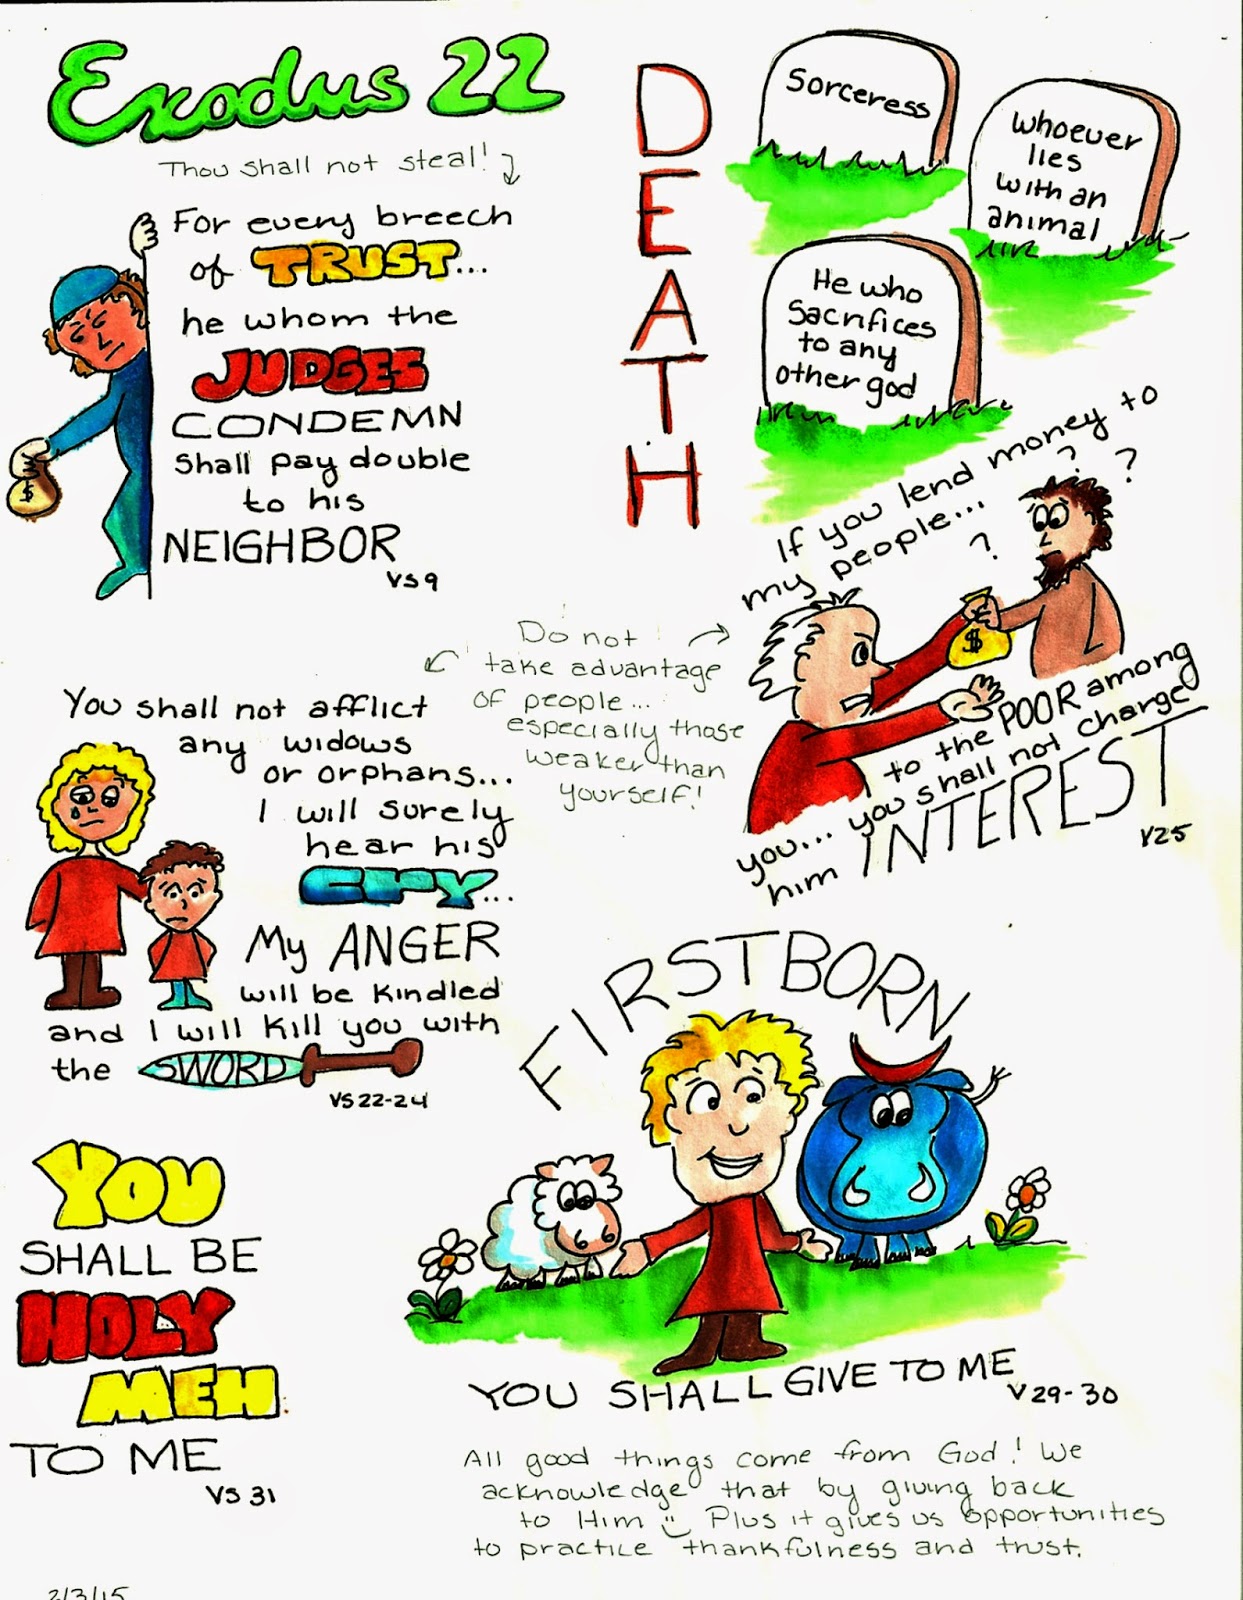 Exodus 22
Thou shall not steal!
For every breech
of TRUST...
he whom the
JUDGES
CONDEMN
shall pay double
to his
NEIGHBOR
VS 9
DEATH
Sorceress
Whoever
lies
with an
animal
He who
sacrifices
to any
other god
If you lend money to
my people...
? ? ?
to the POOR among
you... you shall not charge
him INTEREST
V25
$
$
Do not
take advantage
of people...
especially those
weaker than
yourself!
You shall not afflict
any widows
or orphans...
I will surely
hear his
CRY...
My ANGER
will be kindled
and I will kill you with
the SWORD
VS 22-24
FIRSTBORN
YOU SHALL GIVE TO ME
V 29-30
YOU
SHALL BE
HOLY
MEN
TO ME
VS 31
All good things come from God! We
acknowledge that by giving back
to Him Plus it gives us opportunities
to practice thankfulness and trust.
2/3/15